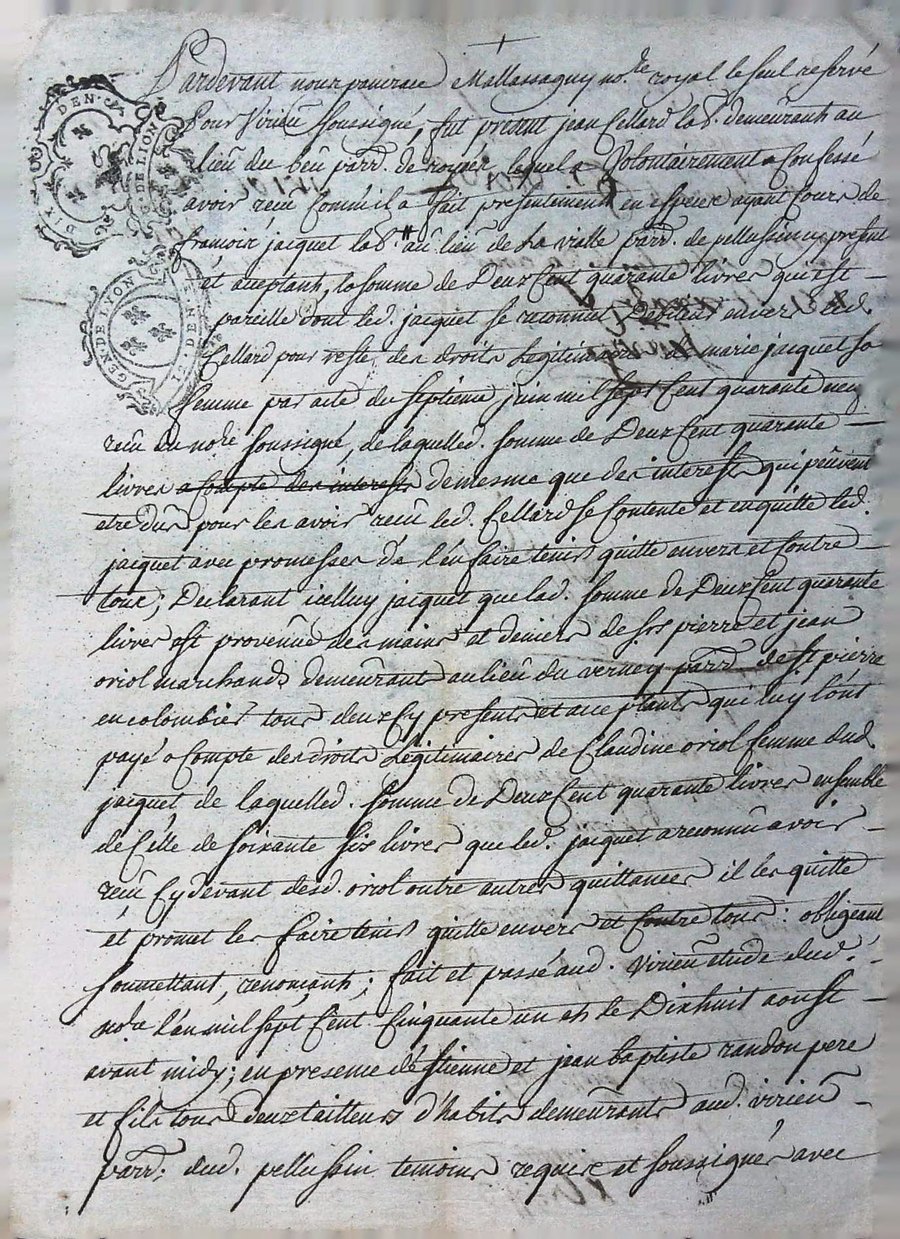 Pardevant nous pancrace Mallassagny no.re royal le seul reservé
Pour Virieu soussigné, fut présent jean Cellard lab.r demeurant au
lieu du beu parr. de royzé lequel a volontairement Confessé
avoir receu Comme il a fait presentement en especes ayant Cours de
francois jacquet lab.r au lieu de la vialle parr. de pellussin cy present
et acceptant, la somme de Deux Cent quarante livres qui est
pareille dont led. jacquet se reconnut Debiteur envers led.
Cellard pour reste des droits Legitimaires de marie jacquet sa
femme par acte du septieme juin mil sept Cent quarante neuf
receu du no.re soussigné, de laquelled. somme de Deux Cent quarante
livres a Compte des interests de mesme que des interests qui peuvent
etre dus pour les avoir receu led. Cellard se Contente et en quitte led.
jacquet avec promesses de l'en faire tenir quitte envers et Contre
tous; Declarant icelluy jacquet que lad. somme de Deux Cent quarante
livres est provenue des mains et deniers de srs pierre et jean
oriol marchands demeurant au lieu du verney parr. de st pierre
en colombier tous deux Cy presents et acceptants qui luy l'ont
payé a Compte des droits Legitimaires de Claudine oriol femme dud.
jacquet de laquelled. somme de Deux Cent quarante livres ensemble
de Celle de soixante six livres que led. jacquet a reconnu avoir
receu Cy devant desd. oriol outre autres quittances il les quitte
et promet les faire tenir quitte envers et Contre tous: obligeant
soumettant, renoncant; fait et passé aud. virieu etude dud.
no.re l'an mil sept Cent Cinquante un et le Dixhuit aoust
avant midy; en presence d'éstienne et jean baptiste randon pere
et fils tous deux tailleurs d'habits demeurants aud. virieu
parr: dud. pellussin temoins requis et soussignés avec
GEN. DE LYON
DIX DEN.
GEN. DE LYON